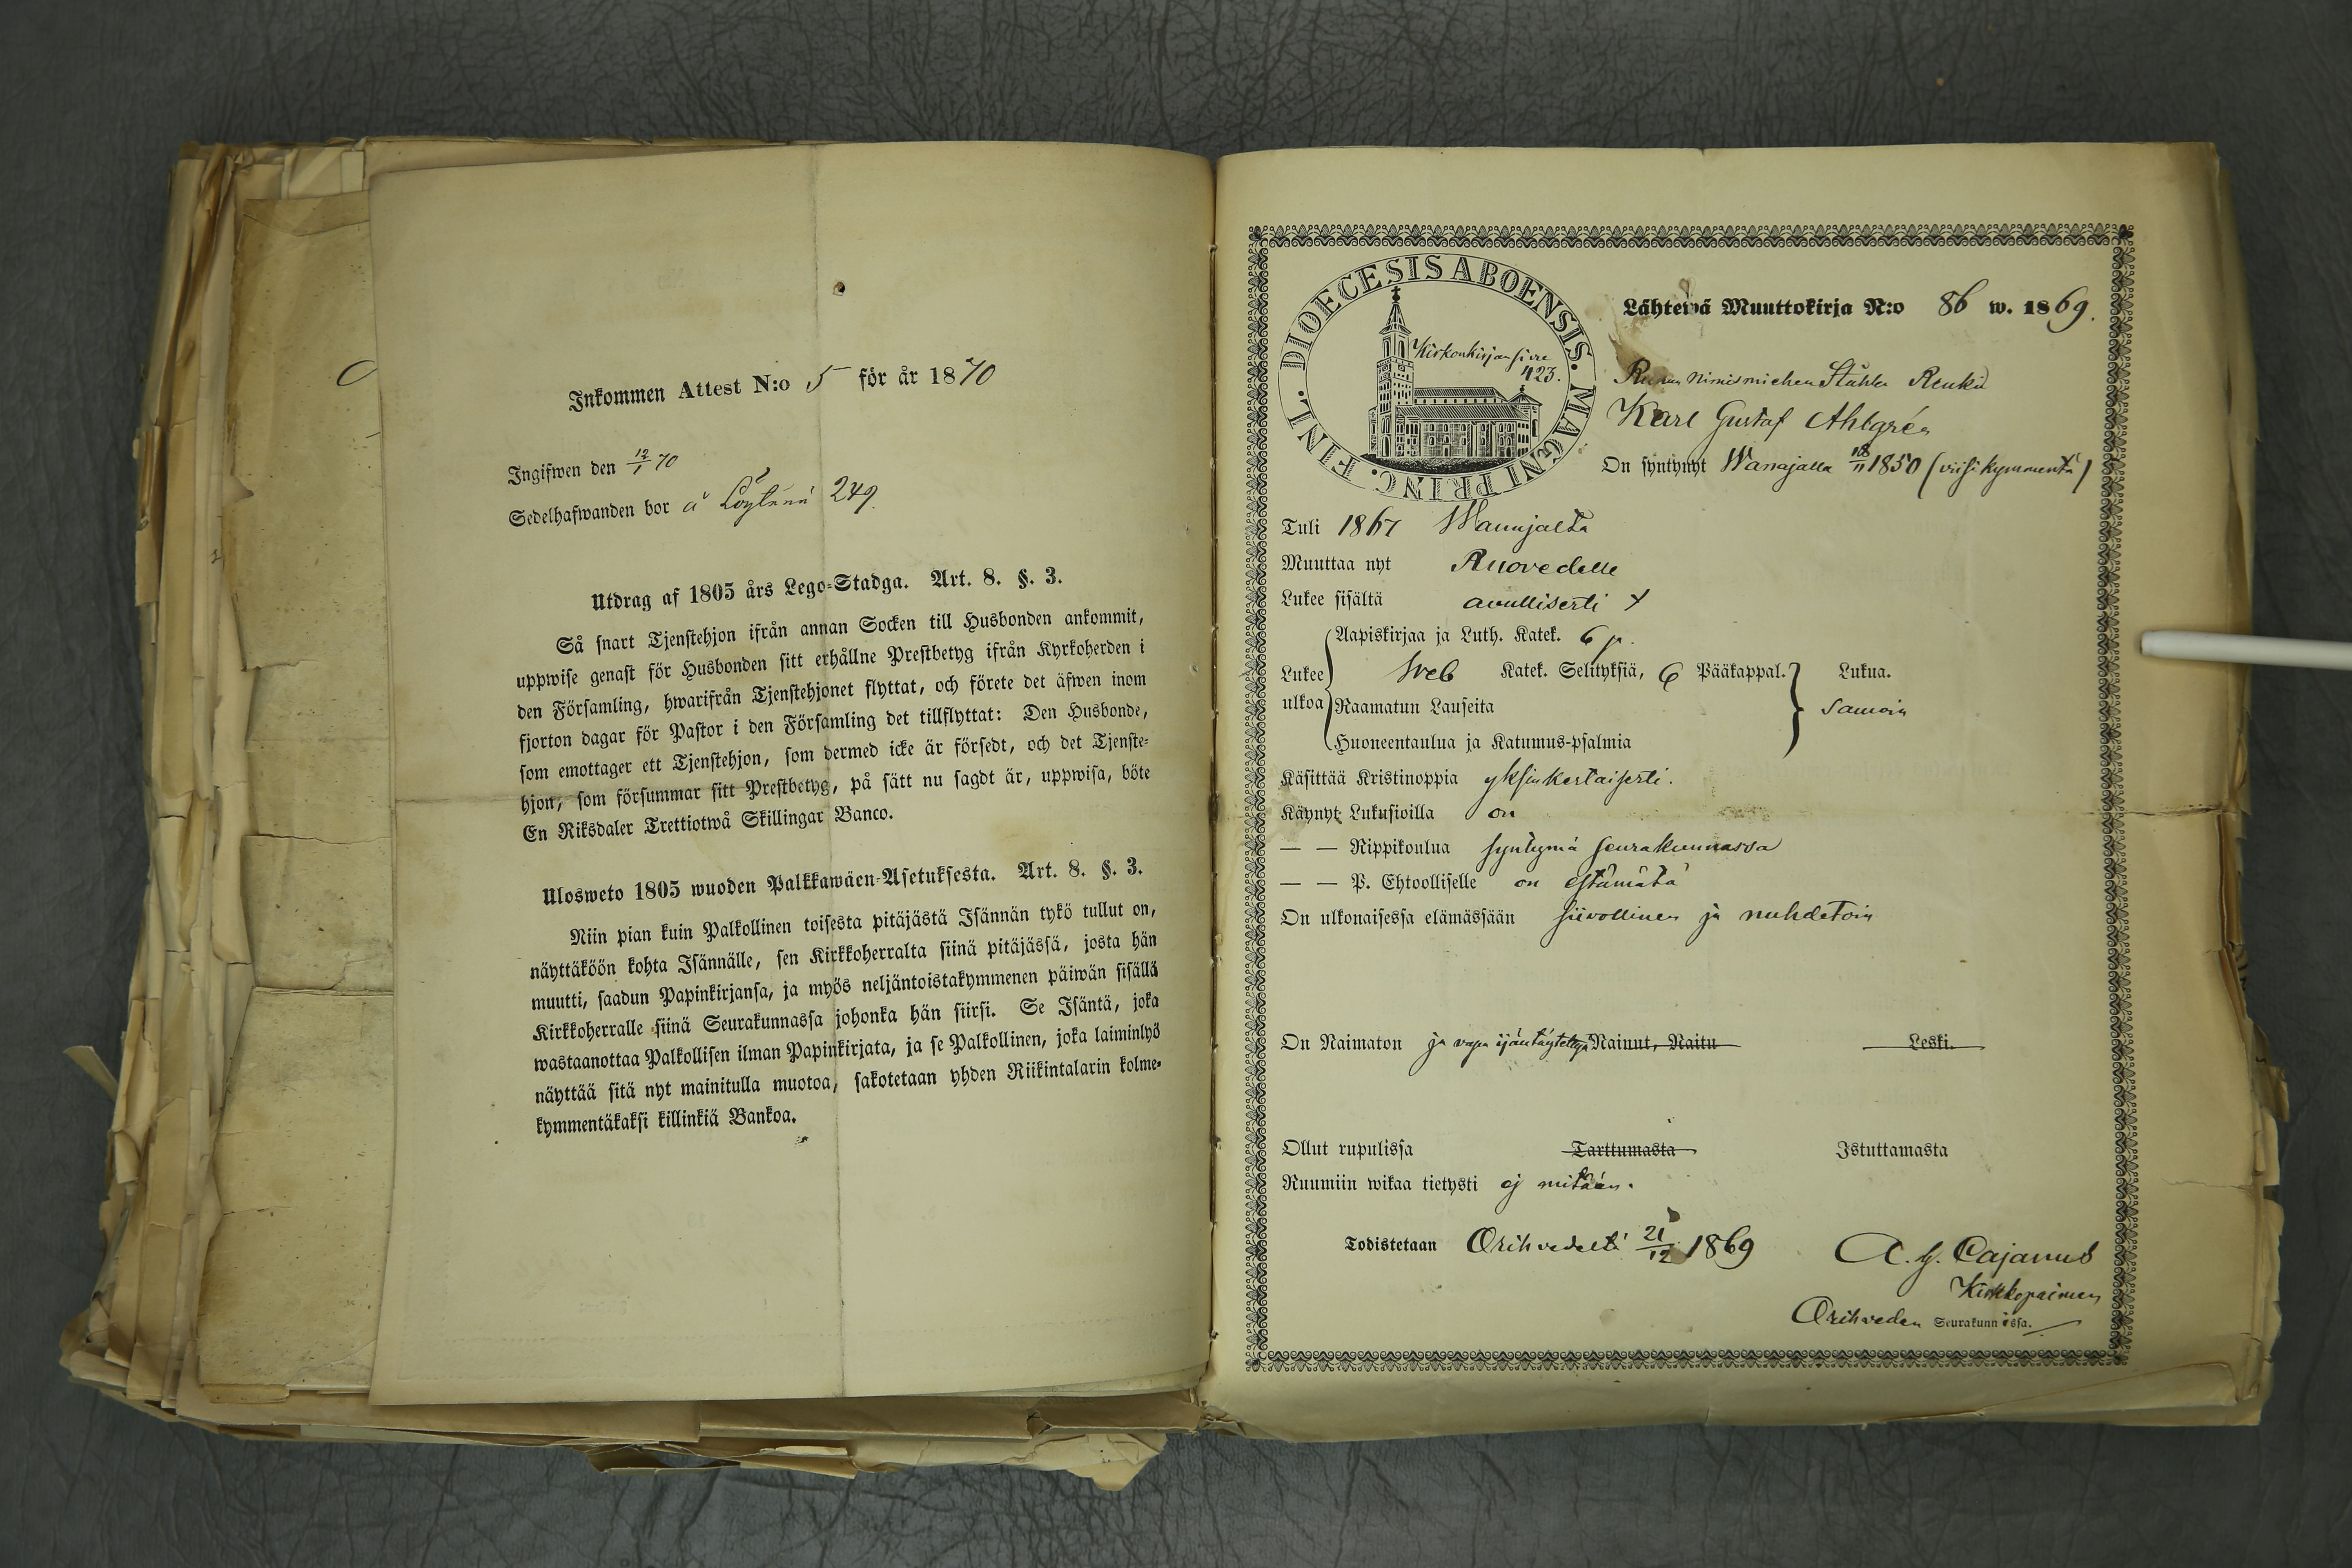 Inkommen Attest N:o 5 för år 1870
Ingifwen den 12/1 70
Sedelhafwanden bor å Löytänä 249.
Utdrag af 1805 års Lego-Stadga. Art. 8. §. 3.
Så snart Tjenstehjon ifrån annan Socken till Husbonden ankommit,
uppwise genast för Husbonden sitt erhållne Prestbetyg ifrån Kyrkoherden i
den Församling, hwarifrån Tjenstehjonet flyttat, och förete det äfwen inom
fjorton dagar för Pastor i den Församling det tillflyttat: Den Husbonde,
som emottager ett Tjenstehjon, som dermed icke är försedt, och det Tjenste-
hjon, som försummar sitt Prestbetyg, på sätt nu sagdt är, uppwisa, böte
En Riksdaler Trettiotwå Skillingar Banco.
Ulosweto 1805 wuoden Palkkawäen-Asetuksesta. Art. 8. §. 3.
Niin pian kuin Palkollinen toisesta pitäjästä Isännän tykö tullut on,
näyttäköön kohta Isännälle, sen Kirkkoherralta siinä pitäjässä, josta hän
muutti, saadun Papinkirjansa, ja myös neljäntoistakymmenen päiwän sisällä
Kirkkoherralle siinä Seurakunnassa johonka hän siirsi. Se Isäntä, joka
wastaanottaa Palkollisen ilman Papinkirjata, ja se Palkollinen, joka laiminlyö
näyttää sitä nyt mainitulla muotoa, sakotetaan yhden Riikintalarin kolme-
kymmentäkaksi killinkiä Bankoa.
DIOECESIS ABOENSIS. MAGNI PRINC. FINL.
Kirkonkirjan sivu
423.
Lähtewä Muuttokirja N:o 86 w. 1869.
nimismiehen Ståhle Renki
Karl Gustaf Ahlgrén
On syntynyt Wanajalla 18/11 1850 (viisikymmentä)
Tuli 1867 Wanajalta
Muuttaa nyt Ruovedelle
Lukee sisältä avullisesti +
Aapiskirjaa ja Luth. Katek. 6 p.
Lukee ulkoa Sveb Katek. Selityksiä, 6 Pääkappal. Lukua.
Raamatun Lauseita samoin
Huoneentaulua ja Katumus-psalmia
Käsittää Kristinoppia yksinkertaisesti.
Käynyt Lukusioilla on
— — Rippikoulua syntymä seurakunnassa
— — P. Ehtoolliselle on estämätä
On ulkonaisessa elämässään siivollinen ja nuhdetoin
On Naimaton ja vapa ijäntäytettyä Nainut, Naitu Leski.
Ollut rupulissa Tarttumasta Istuttamasta
Ruumiin wikaa tietysti ej mitään.
Todistetaan Orihvedeltä 21/12 1869
A. G. Cajanus
Kirkkopaimen
Orihveden Seurakunnissa.